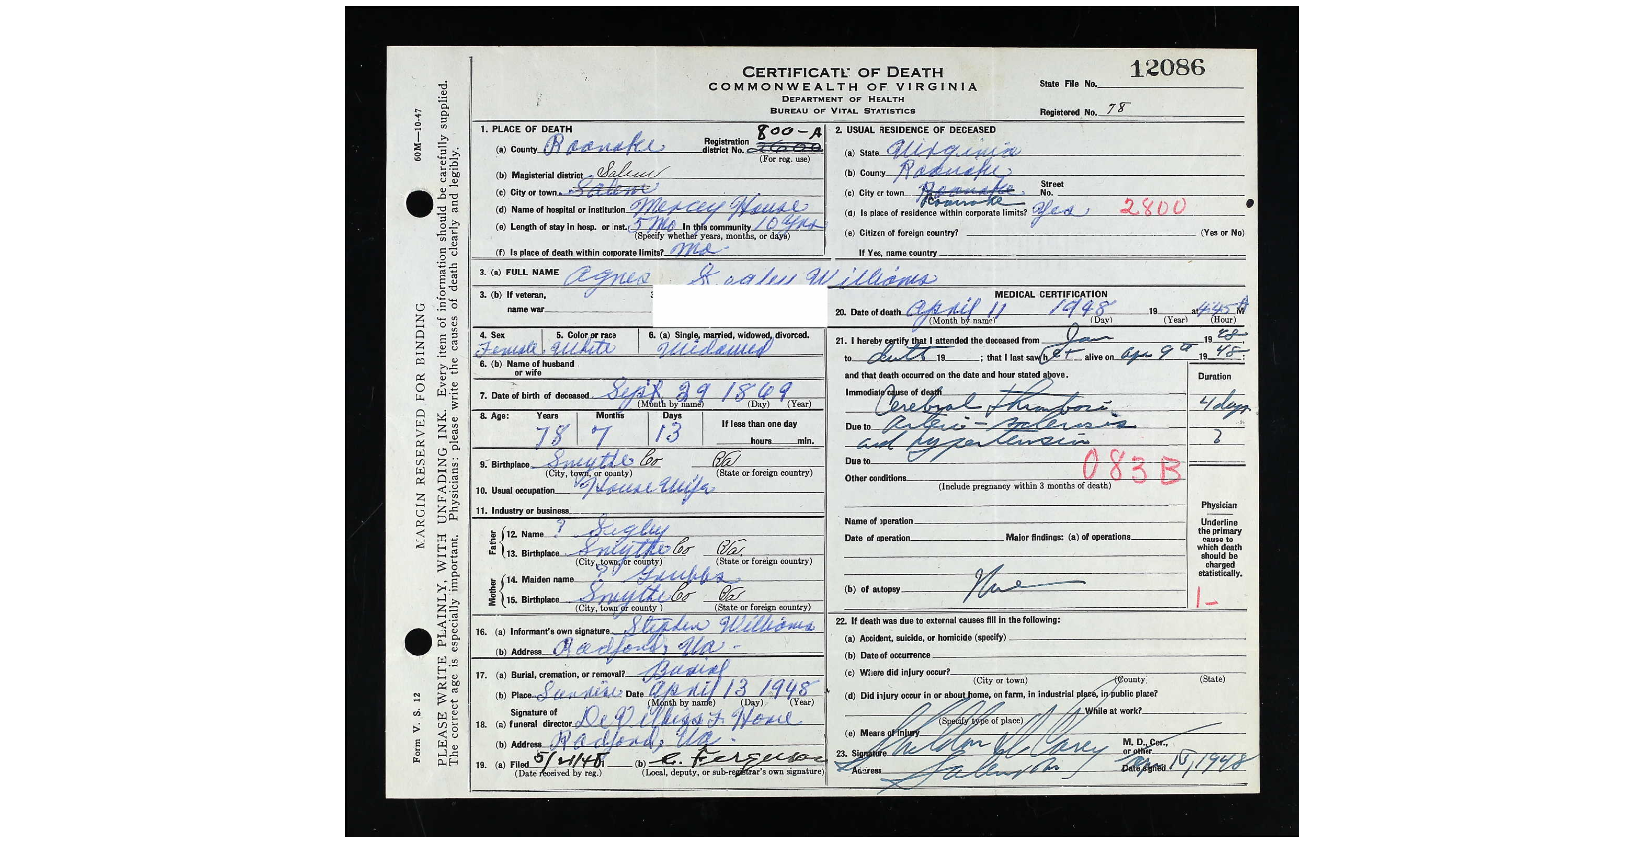 CERTIFICATE OF DEATH
COMMONWEALTH OF VIRGINIA
DEPARTMENT OF HEALTH
BUREAU OF VITAL STATISTICS
State File No. 12086
Registered No. 78
60M—10-47
MARGIN RESERVED FOR BINDING
Form V. S. 12
PLEASE WRITE PLAINLY, WITH UNFADING INK. Every item of information should be carefully supplied.
The correct age is especially important. Physicians: please write the causes of death clearly and legibly.
1. PLACE OF DEATH
(a) County Roanoke Registration district No. 800-A
(For reg. use)
(b) Magisterial district Salem
(c) City or town Salem
(d) Name of hospital or institution Mercey House
(e) Length of stay in hosp. or inst. 5 Mo In this community 10 Yrs
(Specify whether years, months, or days)
(f) Is place of death within corporate limits? No
2. USUAL RESIDENCE OF DECEASED
(a) State Virginia
(b) County Roanoke
(c) City or town Roanoke Street No.
Roanoke
(d) Is place of residence within corporate limits? Yes 2800
(e) Citizen of foreign country? (Yes or No)
If Yes, name country
3. (a) FULL NAME Agnes Williams
3. (b) If veteran,
name war
4. Sex 5. Color or race 6. (a) Single, married, widowed, divorced.
Female White Widowed
6. (b) Name of husband
or wife
7. Date of birth of deceased Sept 29 1869
(Month by name) (Day) (Year)
8. Age: Years Months Days If less than one day
78 7 13 hours min.
9. Birthplace Smythe Co Va
(City, town, or county) (State or foreign country)
10. Usual occupation House Wife
11. Industry or business
Father
12. Name ?
13. Birthplace Smythe Co Va.
(City, town, or county) (State or foreign country)
Mother
14. Maiden name ? Grubbs
15. Birthplace Smythe Co Va
(City, town or county) (State or foreign country)
16. (a) Informant's own signature Stephen Williams
(b) Address Radford, Va.
17. (a) Burial, cremation, or removal? Burial
(b) Place Sunrise Date April 13 1948
(Month by name) (Day) (Year)
Signature of
18. (a) funeral director DeVilbiss F. Home
(b) Address Radford, Va.
19. (a) Filed (b) C. Ferguson
(Date received by reg.) (Local, deputy, or sub-registrar's own signature)
MEDICAL CERTIFICATION
20. Date of death April 11 1948 19 at 4:45 A M
(Month by name) (Day) (Year) (Hour)
21. I hereby certify that I attended the deceased from Jan 19 48
to death 19 ; that I last saw her alive on Apr 9 19 48;
and that death occurred on the date and hour stated above. Duration
Immediate cause of death
Cerebral Thrombosis 4 days
Due to Arterio-sclerosis
and hypertension ?
Due to
083B
Other conditions
(Include pregnancy within 3 months of death)
Name of operation
Date of operation Major findings: (a) of operations
(b) of autopsy None
Physician
Underline
the primary
cause to
which death
should be
charged
statistically.
1-
22. If death was due to external causes fill in the following:
(a) Accident, suicide, or homicide (specify)
(b) Date of occurrence
(c) Where did injury occur?
(City or town) (County) (State)
(d) Did injury occur in or about home, on farm, in industrial place, in public place?
While at work?
(Specify type of place)
(e) Means of injury
23. Signature M. D., Cor., or other
Address Salem Date signed 1948